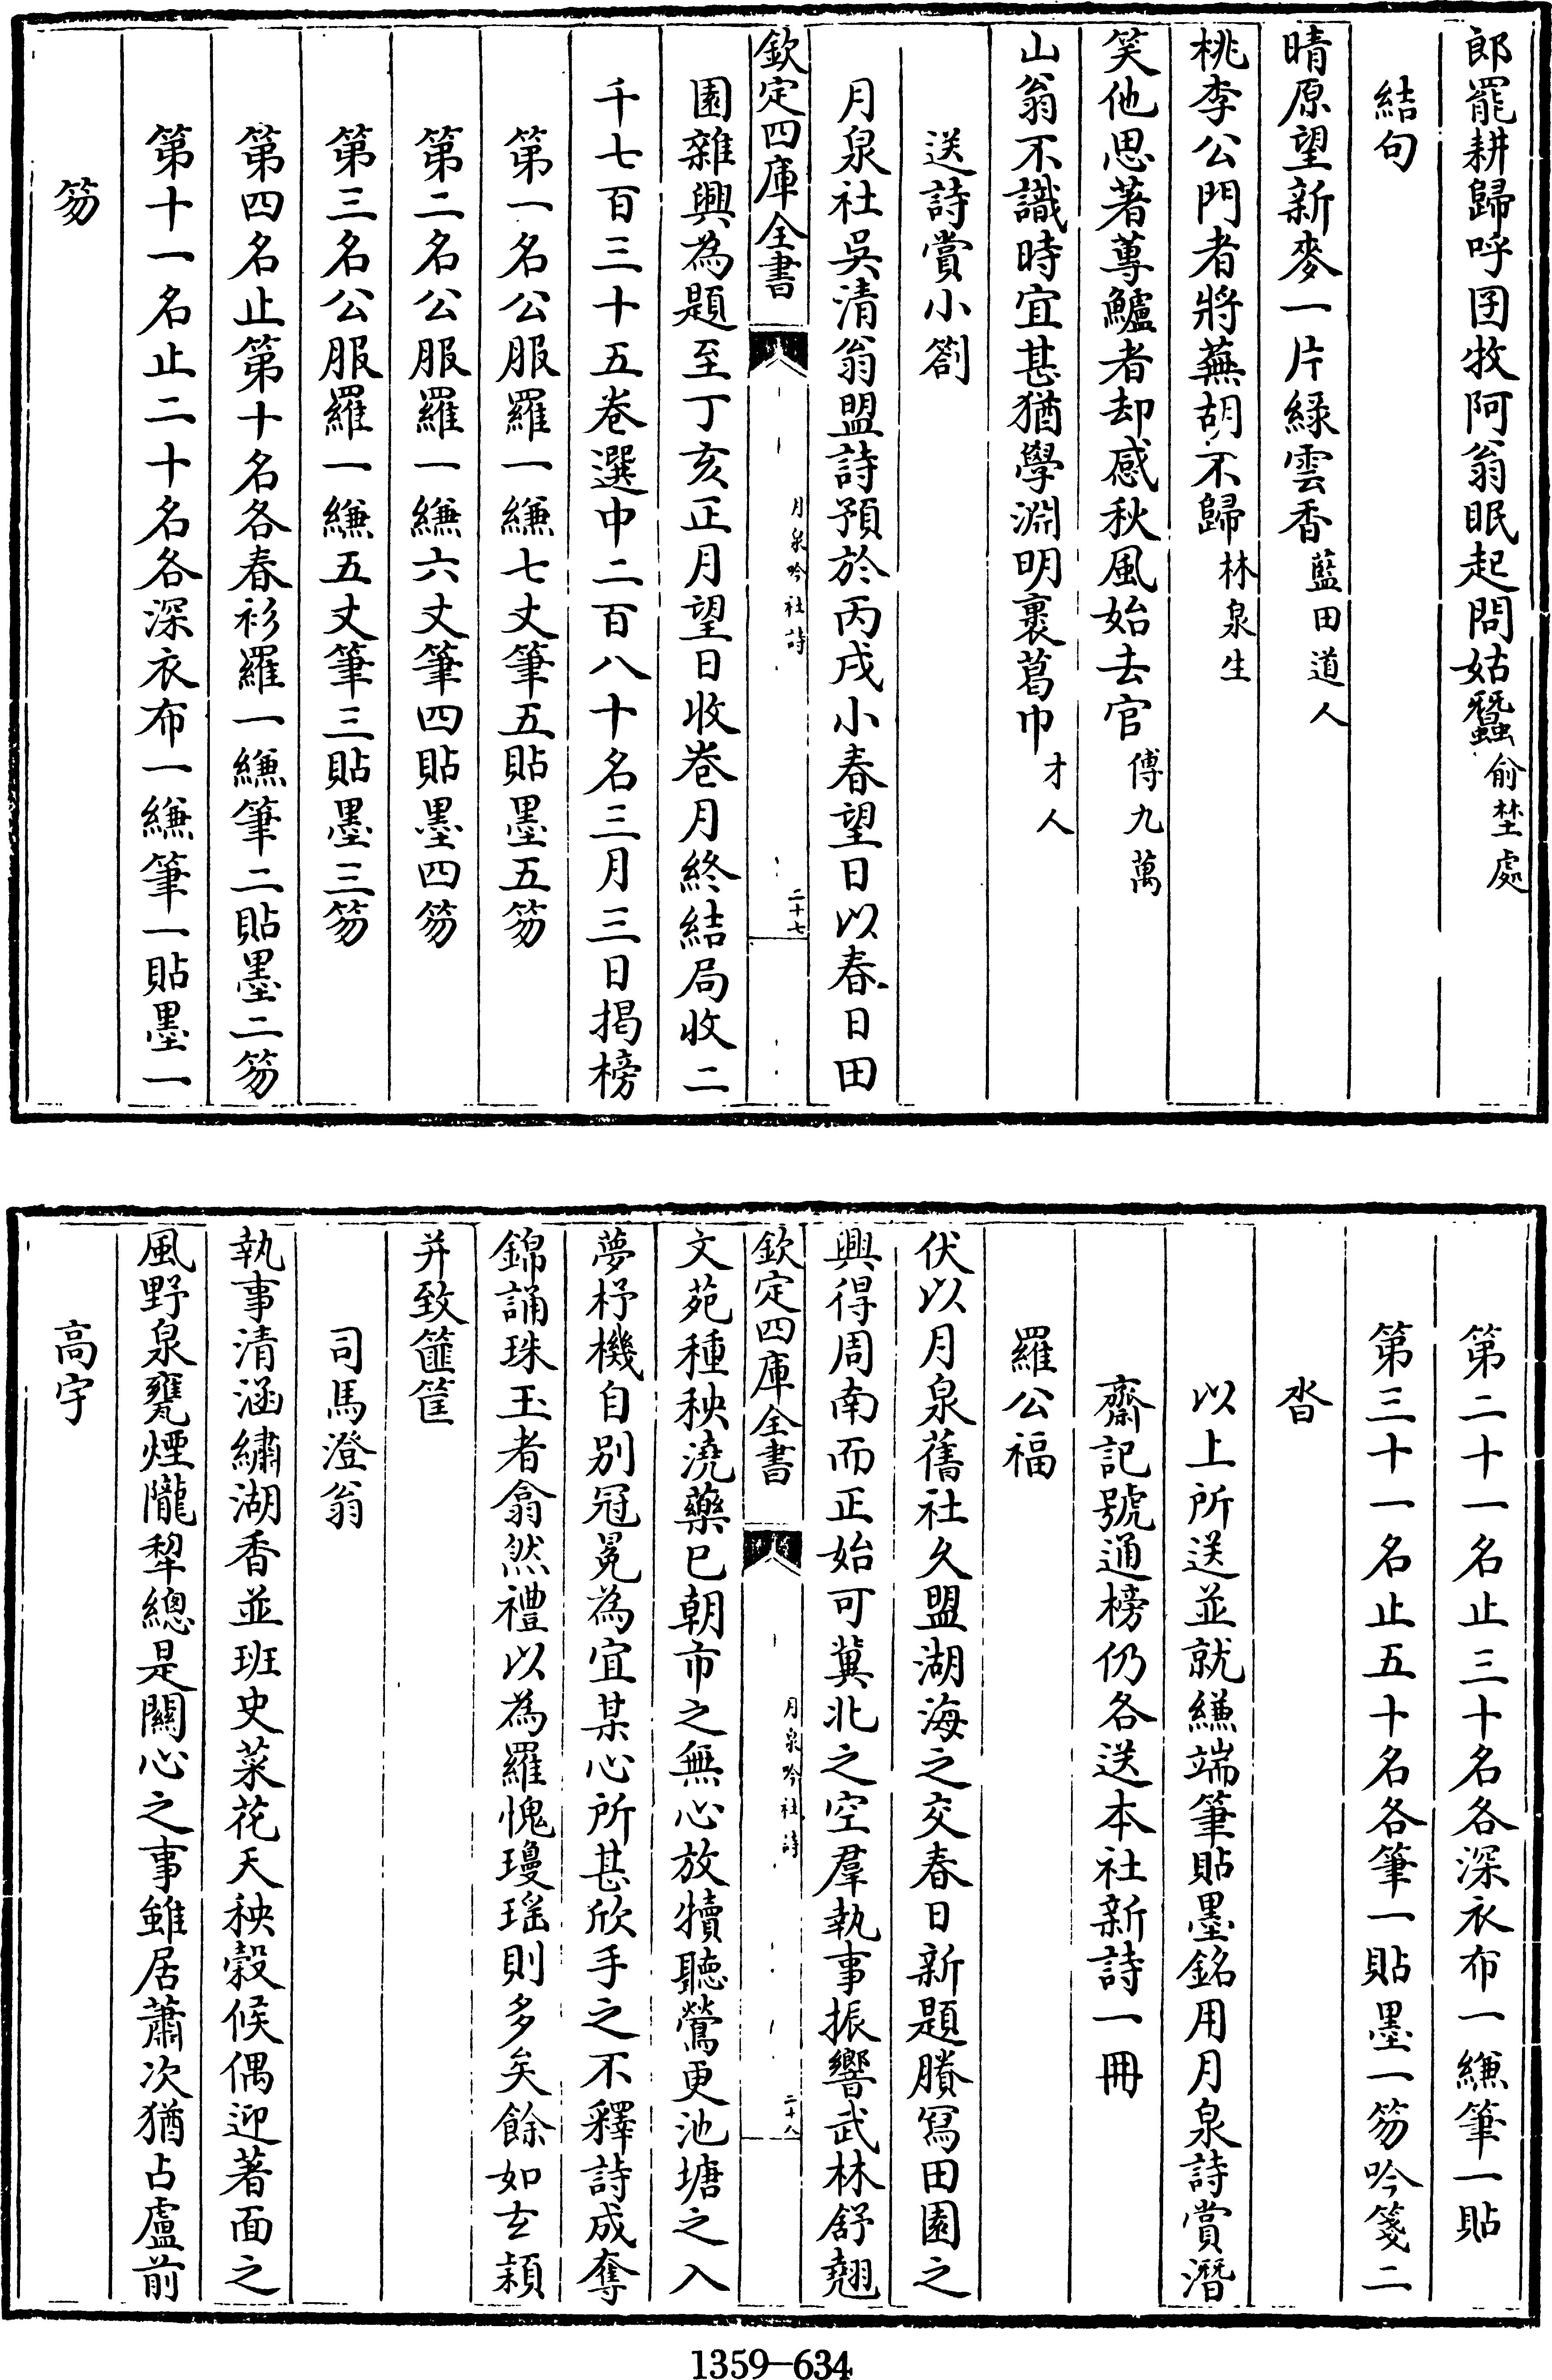 郎罷耕歸呼囝牧阿翁眠起問姑蠶俞埜處
結句
晴原望新麥一片緑雲香藍田道人
桃李公門者將蕪胡不歸林泉生
笑他思著蓴鱸者却感秋風始去官傅九萬
山翁不識時宜甚猶學淵明裹葛巾才人
送詩賞小劄
月泉社吳清翁盟詩預於丙戌小春望日以春日田
欽定四庫全書
月泉吟社詩
二十七
園雜興為題至丁亥正月望日收卷月終結局收二
千七百三十五卷選中二百八十名三月三日揭榜
第一名公服羅一縑七丈筆五貼墨五笏
第二名公服羅一縑六丈筆四貼墨四笏
第三名公服羅一縑五丈筆三貼墨三笏
第四名止第十名各春衫羅一縑筆二貼墨二笏
第十一名止二十名各深衣布一縑筆一貼墨一
笏
第二十一名止三十名各深衣布一縑筆一貼
第三十一名止五十名各筆一貼墨一笏吟箋二
沓
以上所送並就縑端筆貼墨銘用月泉詩賞潛
齋記號通榜仍各送本社新詩一冊
羅公福
伏以月泉舊社久盟湖海之交春日新題賸寫田園之
興得周南而正始可冀北之空羣執事振響武林舒翹
欽定四庫全書
月泉吟社詩
二十八
文苑種秧澆藥已朝市之無心放犢聽鶯更池塘之入
夢杼機自别冠冕為宜某心所甚欣手之不釋詩成奪
錦誦珠玉者翕然禮以為羅愧瓊瑶則多矣餘如玄穎
并致篚筐
司馬澄翁
執事清涵繡湖香並班史菜花天秧穀候偶迎著面之
風野泉甕煙隴犂總是關心之事雖居蕭次猶占盧前
高宇
1359-634